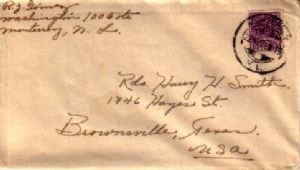 R. J. Gómez
Washington 1006 Ote
Monterrey, N. L.
Rdo. Harry H. Smith.
1746 Hayes St.
Brownsville, Texas.
USA